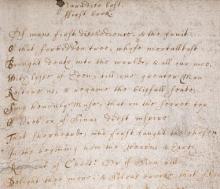 Paradise lost.
First book
Of mans first disobedience, & the fruit
Of that forbidden tree, whose mortall tast
Brought death into the world, & all our woe,
With losse of Eden, till one greater Man
Restore us, & regaine the blisfull seate,
Sing heavenly Muse, that on the secret top
Of Oreb or Sinai didst inspire
That shepheard, who first taught the chosen
In the beginning how the heavens & earth
out of Chaos: Or if Sion hill
Delight thee more, & Siloa's brooke that